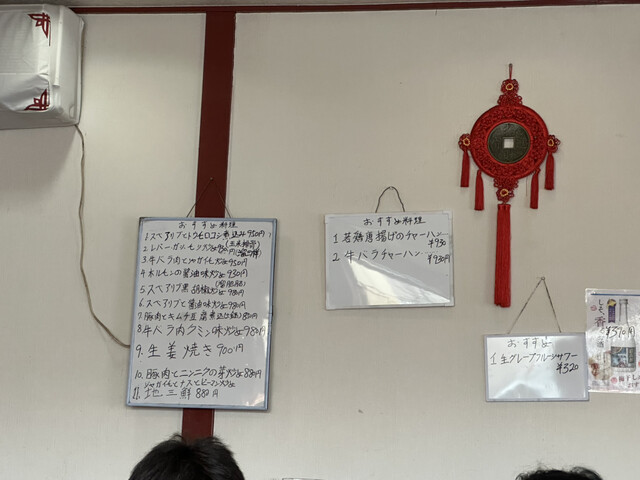 おすすめ料理
1.スペアリブとトウモロコシ煮込み950円
2.レバーガーリック炒め
3.牛バラ肉とジャガイモ炒め950円
4.ホルモンの醤油味炒め930円
5.スペアリブ黒胡椒炒め980円
6.スペアリブと醤油味炒め980円
7.豚肉とキムチ豆腐煮込
8.牛バラ肉クミン味炒め980円
9.生姜焼き900円
10.豚肉とニンニクの芽炒め880円
ジャガイモとナスとピーマン炒め
11.地三鮮880円
おすすめ料理
1若鶏唐揚げのチャーハン
¥930
2.牛バラチャーハン ¥930円
おすすめ
1生グレープフルーツサワー
¥320
¥390円